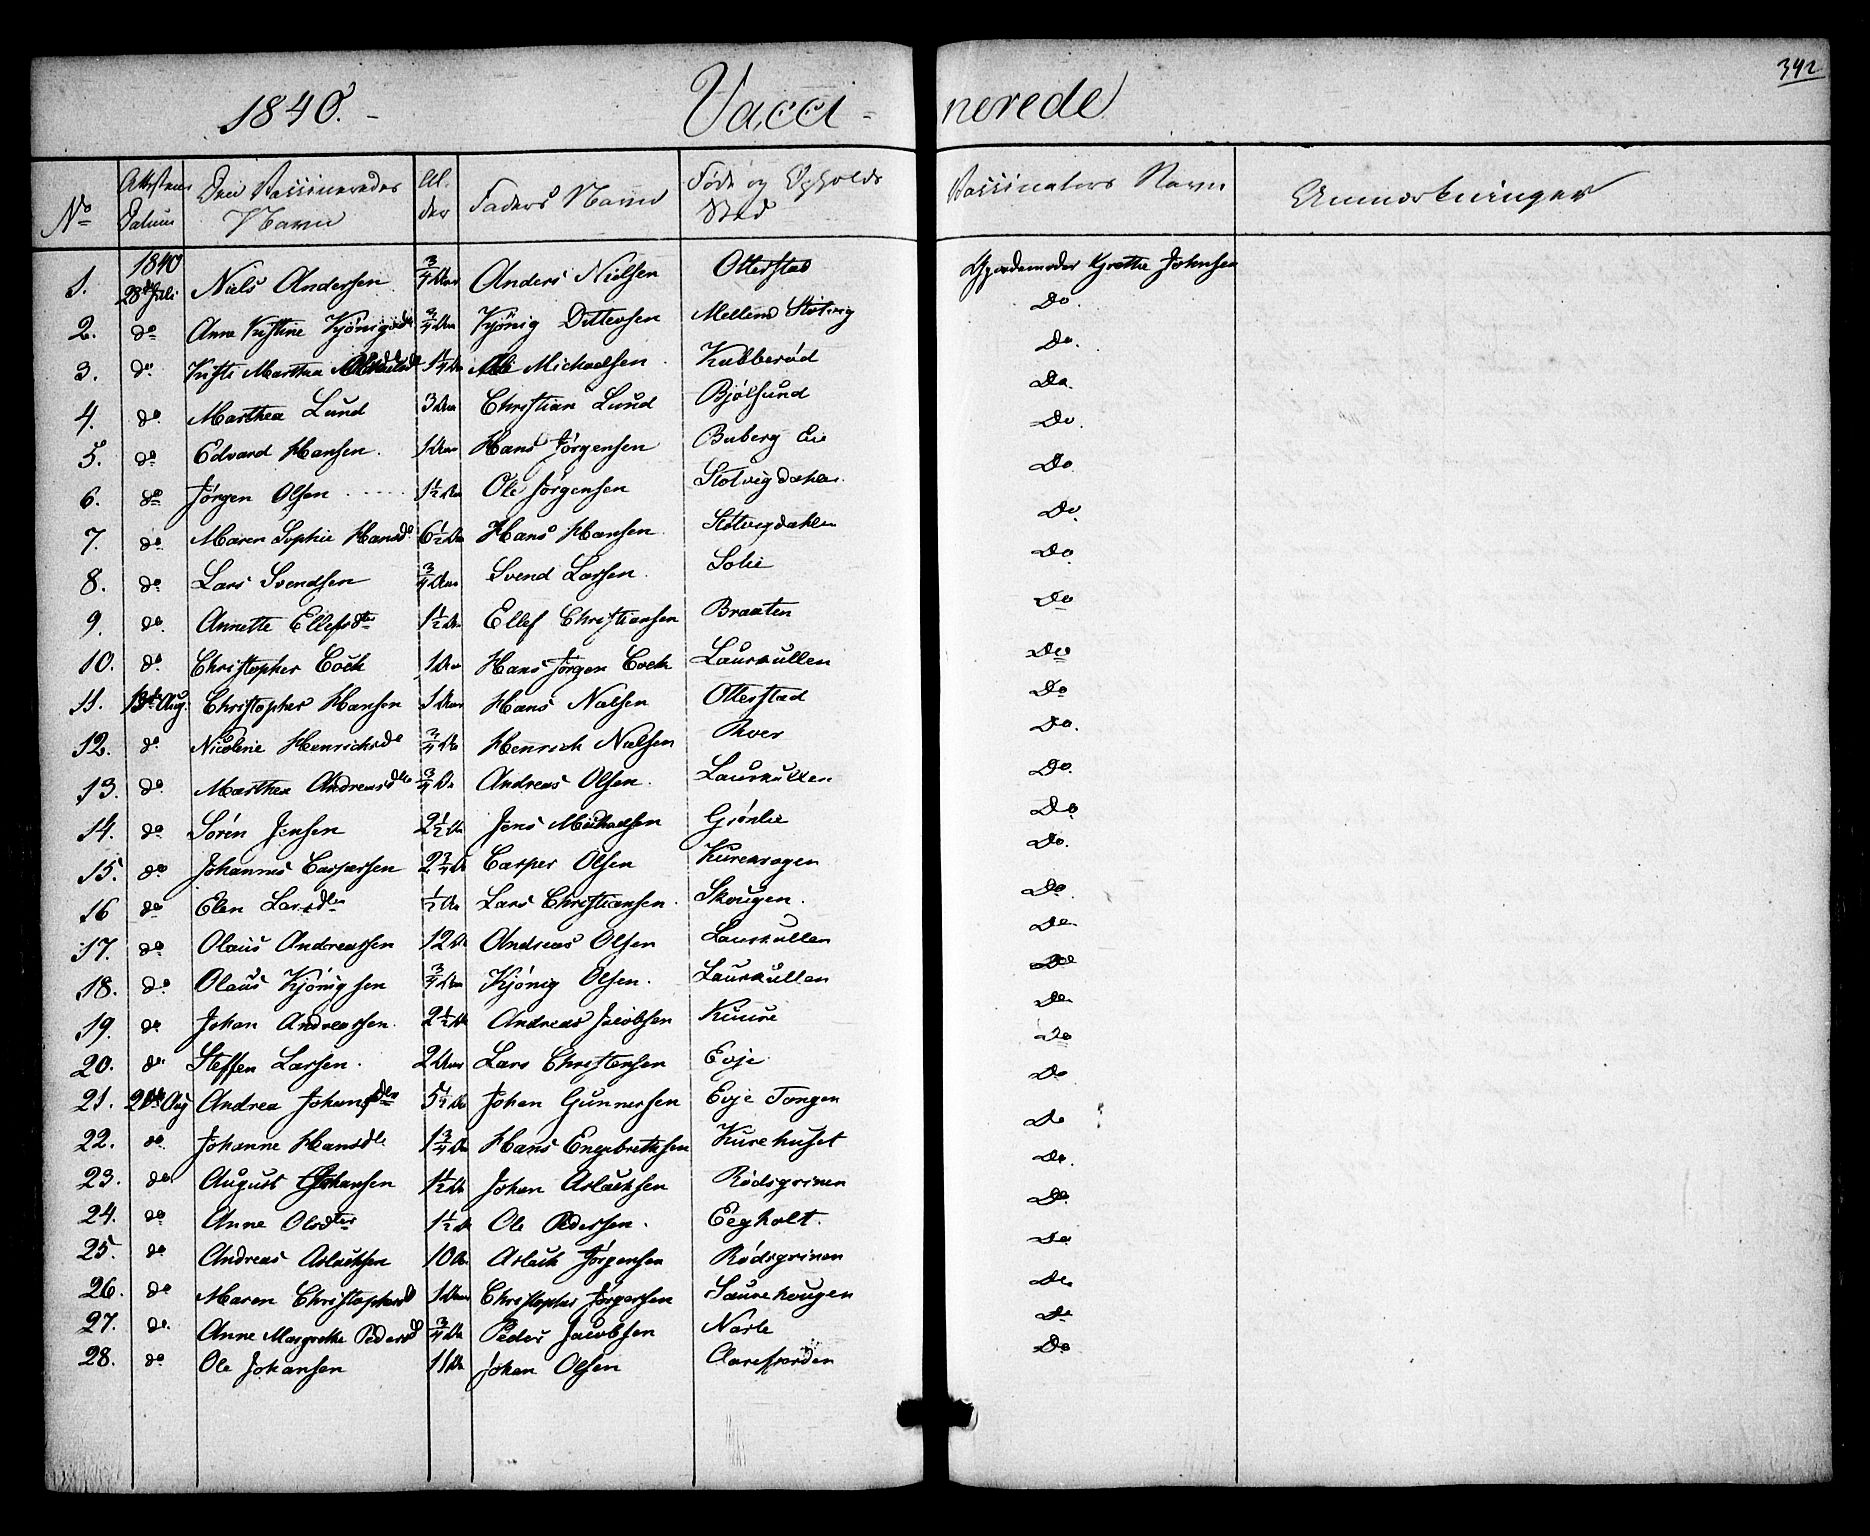 342
1840.- Vacci-nerede
No Attestens Datum Den Vaccineredes Navn Alder Faders Navn Føde og Opholds Sted Vaccinators Navn Anmærkninger
1. 1840 28de Juli Niels Andersen 3/4 Aar Anders Nielsen Otterstad Gjordemoder Grethe Johnsen
2. do Anne Kistine Kjönigsdr 3/4 Aar Kjönig Ditlevsen Mellem Stotvig Do.
3. do Michaelsen Kubberød Do.
4. do Marthea Lund 3 Aar Christian Lund Bjølsund Do.
5. do Edvard Hansen. 1 Aar Hans Jørgensen Buberg Eie Do.
6. do Jørgen Olsen 1½ Aar Ole Jørgensen Stotvigdahlen. Do
7. do Maren Sophie Hansd 6½ Aar Hans Hansen. Stotvigdahlen Do.
8. do Lars Svendsen 3/4 Aar Svend Larsen. Solie Do
9. do Annette Ellefsdtr 1½ Aar Ellef Christiansen Braaten Do
10. do Christopher Cock 1 Aar Hans Jørgen Cock Laurkullen Do
11. 13de Aug. Christopher Hansen 1 Aar Hans Nielsen Otterstad Do
12. do Nicoline Henrichsdr 3/4 Aar Henrich Nielsen Rver Do.
13. do Marthea Andreasdtr 3/4 Aar Andreas Olsen. Laurkullen Do.
14. do Sören Jensen 2½ Aar Jens Michaelsen Grönlie Do
15. do Johannes Caspersen 2 3/4 Aar Casper Olsen Kurekrogen Do.
16 do Elen Larsdtr ½ Aar Lars Christiansen. Skougen. Do.
17. do Olaus Andreassen 12 Aar Andreas Olsen Laurkullen Do
18. do Olaus Kjönigsen 3/4 Aar Kjönig Olsen. Laurkullen Do
19. do Johan Andreassen. 2½ Aar Andreas Jacobsen Kuure Do
20. do Steffen Larsen. 2 Aar Lars Christensen Evje Do
21. Aug Andrea Johansdtr Johan Gunnersen Evje Tangen Do
22. do Johanne Hansdr 1 3/4 Aar Hans Engebrethsen Kurehuset Do
23. do August Johansen 1½ Aar Johan Aslacksen Rødsgrinen Do.
24. do Anne Olsdtr 1½ Aar Ole Pedersen. Eegholt. Do
25. do Andreas Aslacksen 10 Aar Aslack Jørgensen Rødsgrinen Do
26. do Maren Christophersd 1 Aar Christopher Jørgensen Saurehougen Do
27. do. Anne Margrethe Pedersd 3/4 Aar Peder Jacobsen Narte Do
28. do Ole Johansen 11 Aar Johan Olsen Aarefjorden Do